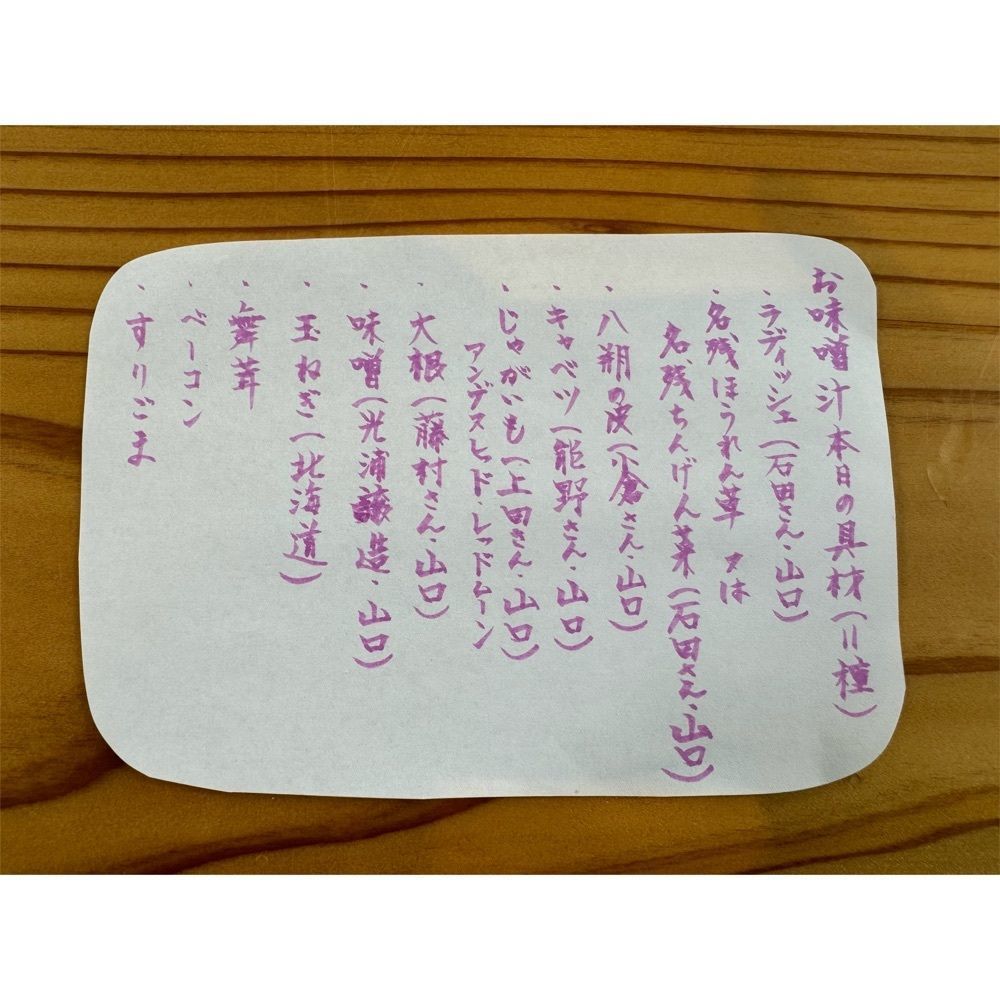 お味噌汁本日の具材(11種)
・ラディッシュ(石田さん・山口)
・名残ほうれん草 又は
名残ちんげん菜(石田さん・山口)
・八朔の皮(小倉さん・山口)
・キャベツ(能野さん・山口)
・じゃがいも(上田さん・山口)
アンデスレッド・レッドムーン
・大根(藤村さん・山口)
・味噌(光浦醸造・山口)
・玉ねぎ(北海道)
・舞茸
・ベーコン
・すりごま